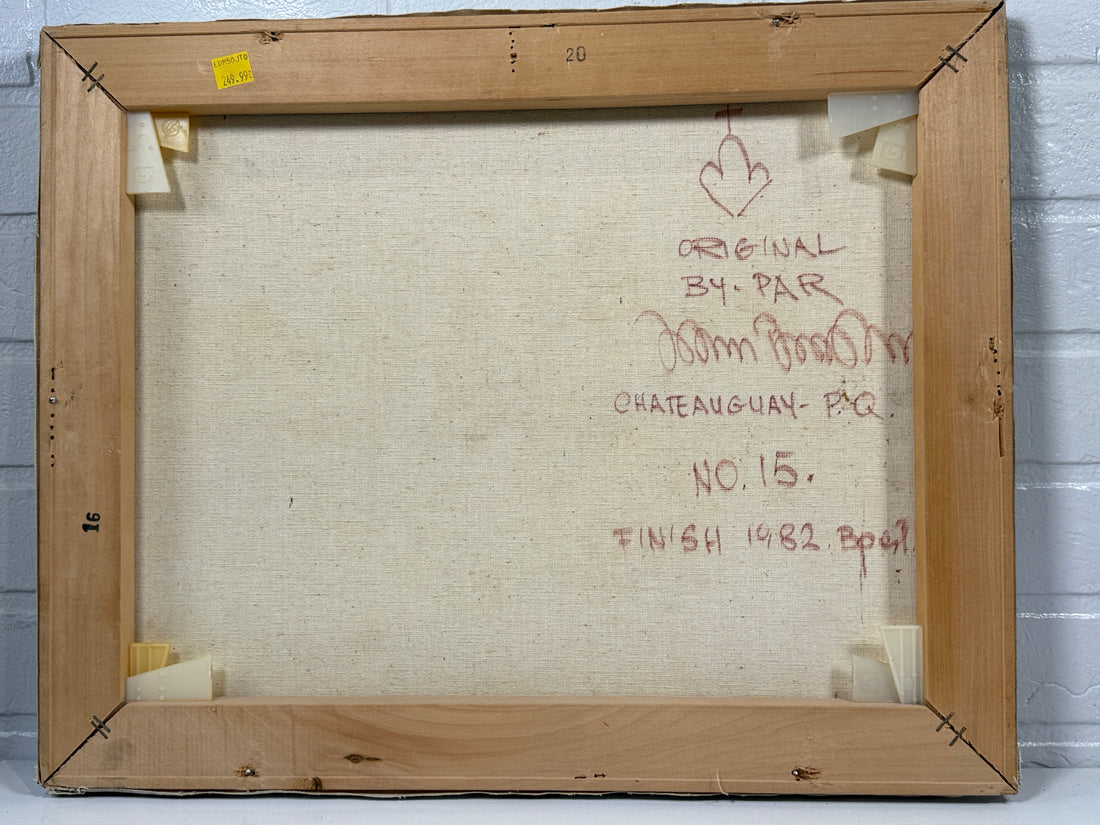 20
EDMSOJTO
249.99
ORIGINAL
BY. PAR
CHATEAUGUAY - P.Q.
NO. 15.
16
FINISH 1982.